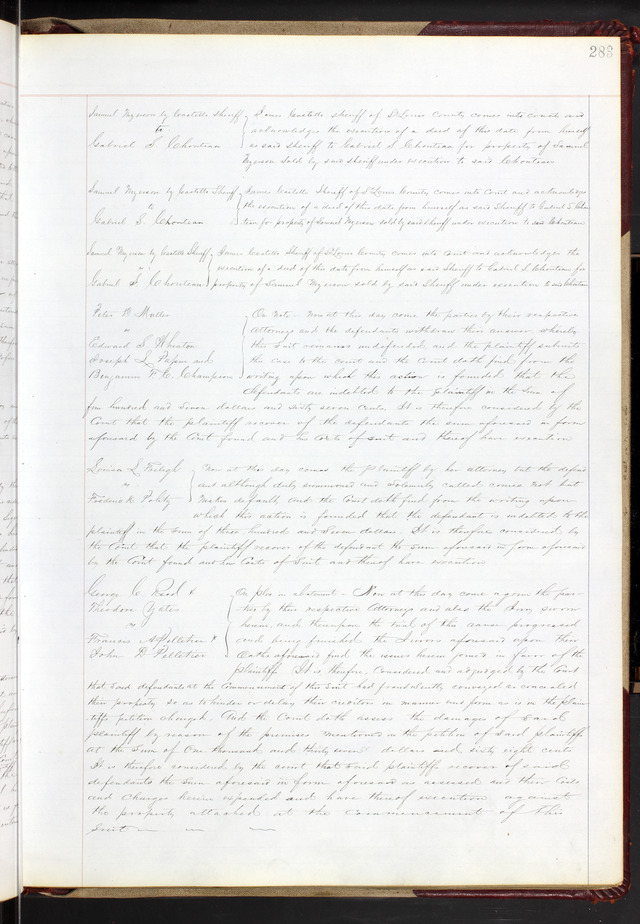 283
Samuel Myerson by Castello Sheriff } James Castello sheriff of St Louis County comes into court and
to acknowledges the execution of a deed of this date from himself
Gabriel S Chouteau as said sheriff to Gabriel S. Chouteau for property of Samuel
Myerson sold by said sheriff under execution to said Chouteau
Samuel Myerson by Castello Sheriff } James Castello Sheriff of St Louis County comes into Court and acknowledges
to the execution of a deed of this date from himself as said Sheriff to Gabriel S Chou
Gabriel S. Chouteau teau for property of Samuel Myerson sold by said sheriff under execution to said Chouteau
Samuel Myerson by Castello Sheriff } James Castello Sheriff of St Louis County comes into Court and acknowledges the
execution of a deed of this date from himself as said Sheriff to Gabriel S. Chouteau for
Gabriel S. Chouteau property of Samuel Myerson sold by said Sheriff under execution to said Chouteau
Peter D Muller } On Note - Now at this day come the parties by their respective
vs Attorneys and the defendants withdraw their answer, whereby
Edward S Wheaton this Suit remains undefended and the plaintiff submits
Joseph L Papin and the case to the court and the Court doth find from the
Benjamin F C. Champion writing upon which this action is founded that the
defendants are indebted to the plaintiff in the Sum of
four hundred and Seven dollars and sixty seven cents It is therefore considered by the
Court that the plaintiff recover of the defendants the sum aforesaid in form
aforesaid by the Court found and his costs of suit and thereof have execution
Louisa L } Now at this day comes the plaintiff by her attorney but the defend
vs ant although duly summoned and solemnly called comes not but
Frederick makes default, and the Court doth find from the writing upon
which this action is founded that the defendant is indebted to the
plaintiff in the Sum of three hundred and Seven dollars It is therefore considered by
the Court that the plaintiff recover of the defendant the sum aforesaid in form aforesaid
by the Court found and her Costs of Suit and thereof have execution
George C. Reed & } On plea in abatement - Now at this day come again the par
Theodore Yates ties by their respective Attorneys and also the Jury sworn
vs herein, and thereupon the trial of this cause progressed
Francois A Pelletier & and being finished the Jurors aforesaid upon their
John B Pelletier Oaths aforesaid find the issues herein joined in favor of the
plaintiff It is therefore, Considered and adjudged by the Court
that said defendants at the Commencement of this Suit had fraudulently conveyed or concealed
their property so as to hinder or delay their creditors in manner and form as is in the plain
tiffs petition charged, And the Court doth assess the damages of said
plaintiff by reason of the premises mentioned in the petition of said plaintiffs
at the Sum of One thousand and thirty seven dollars and sixty eight cents
It is therefore considered by the court that said plaintiffs recover of said
defendants the sum aforesaid in form aforesaid as assessed and their Costs
and charges herein expended and have thereof execution against
the property attached at the commencement of this
suit